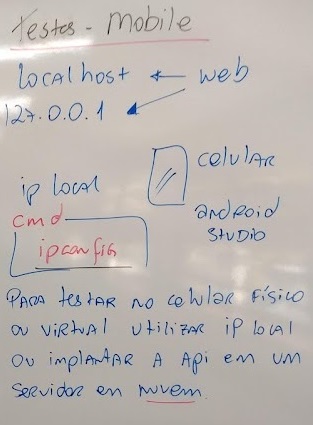 Testes - Mobile
localhost ← web
127.0.0.1
celular
ip local
cmd
android
STUDIO
ipconfig
PARA testar no celular físico
ou virtual utilizar ip local
ou implantar a Api em um
servidor en nuvem